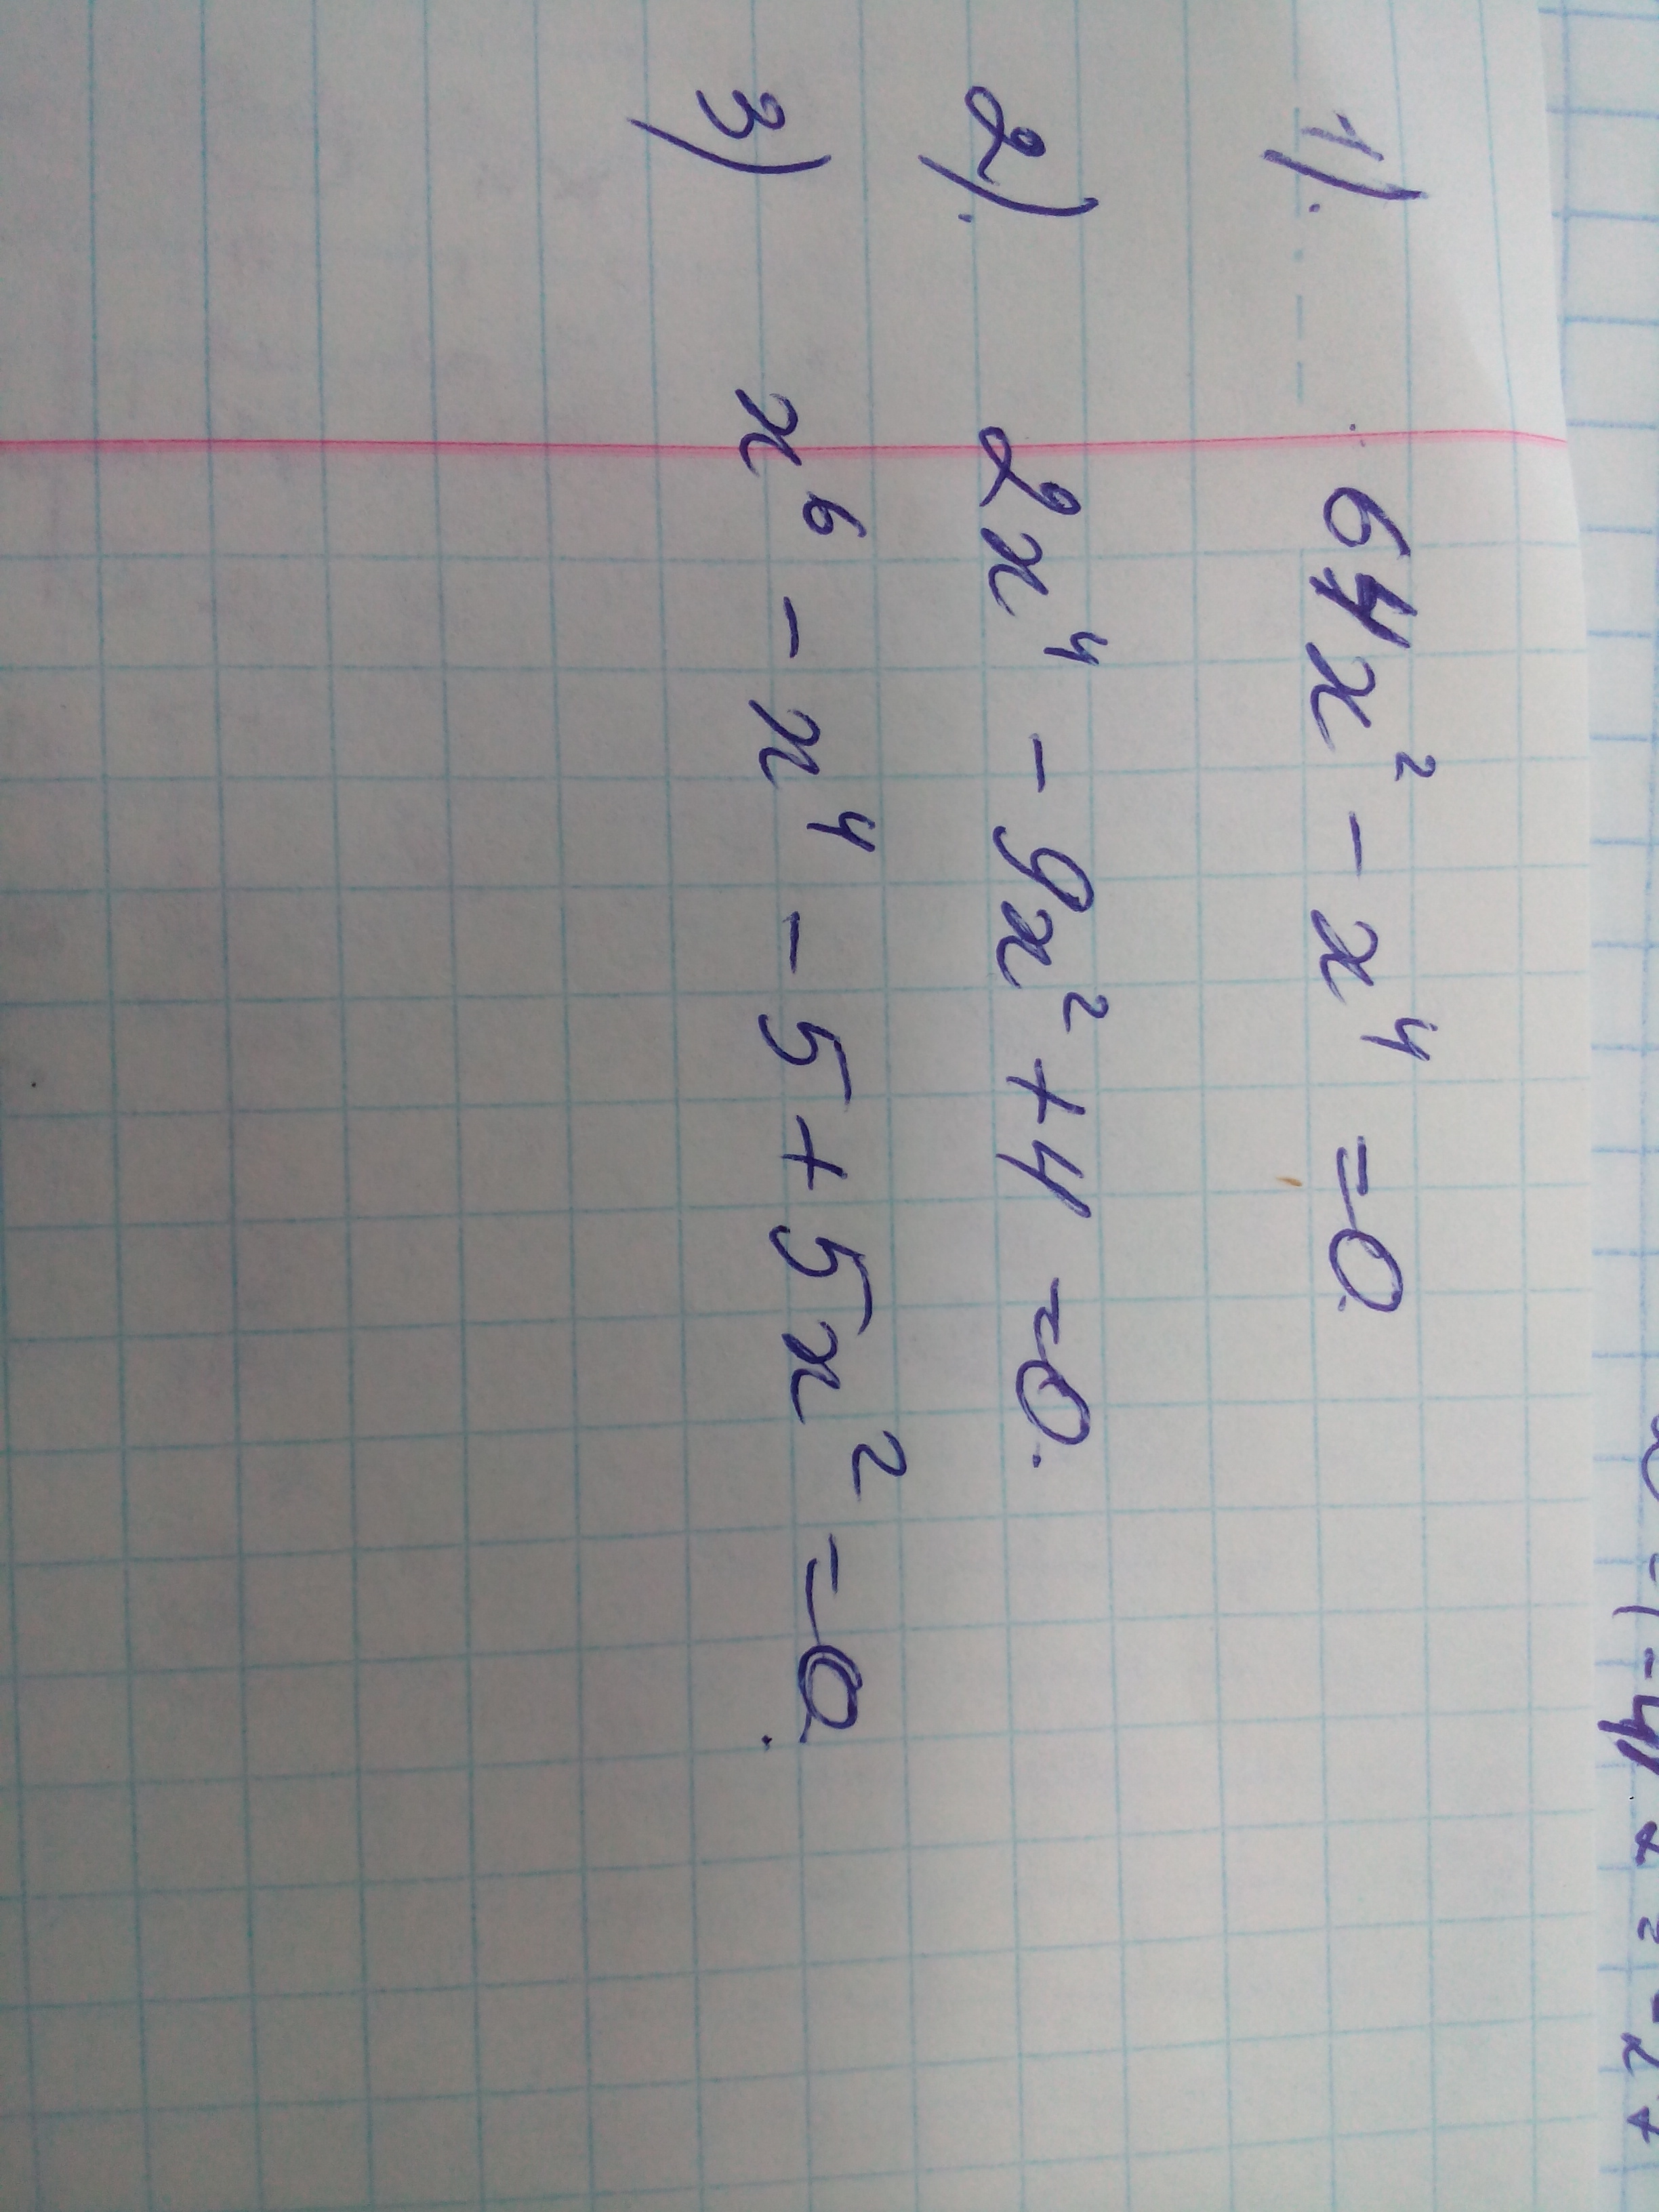 1). 64x² - x⁴ = 0.
2). 2x⁴ - 9x² + 4 = 0.
3) x⁶ - x⁴ - 5 + 5x² = 0.